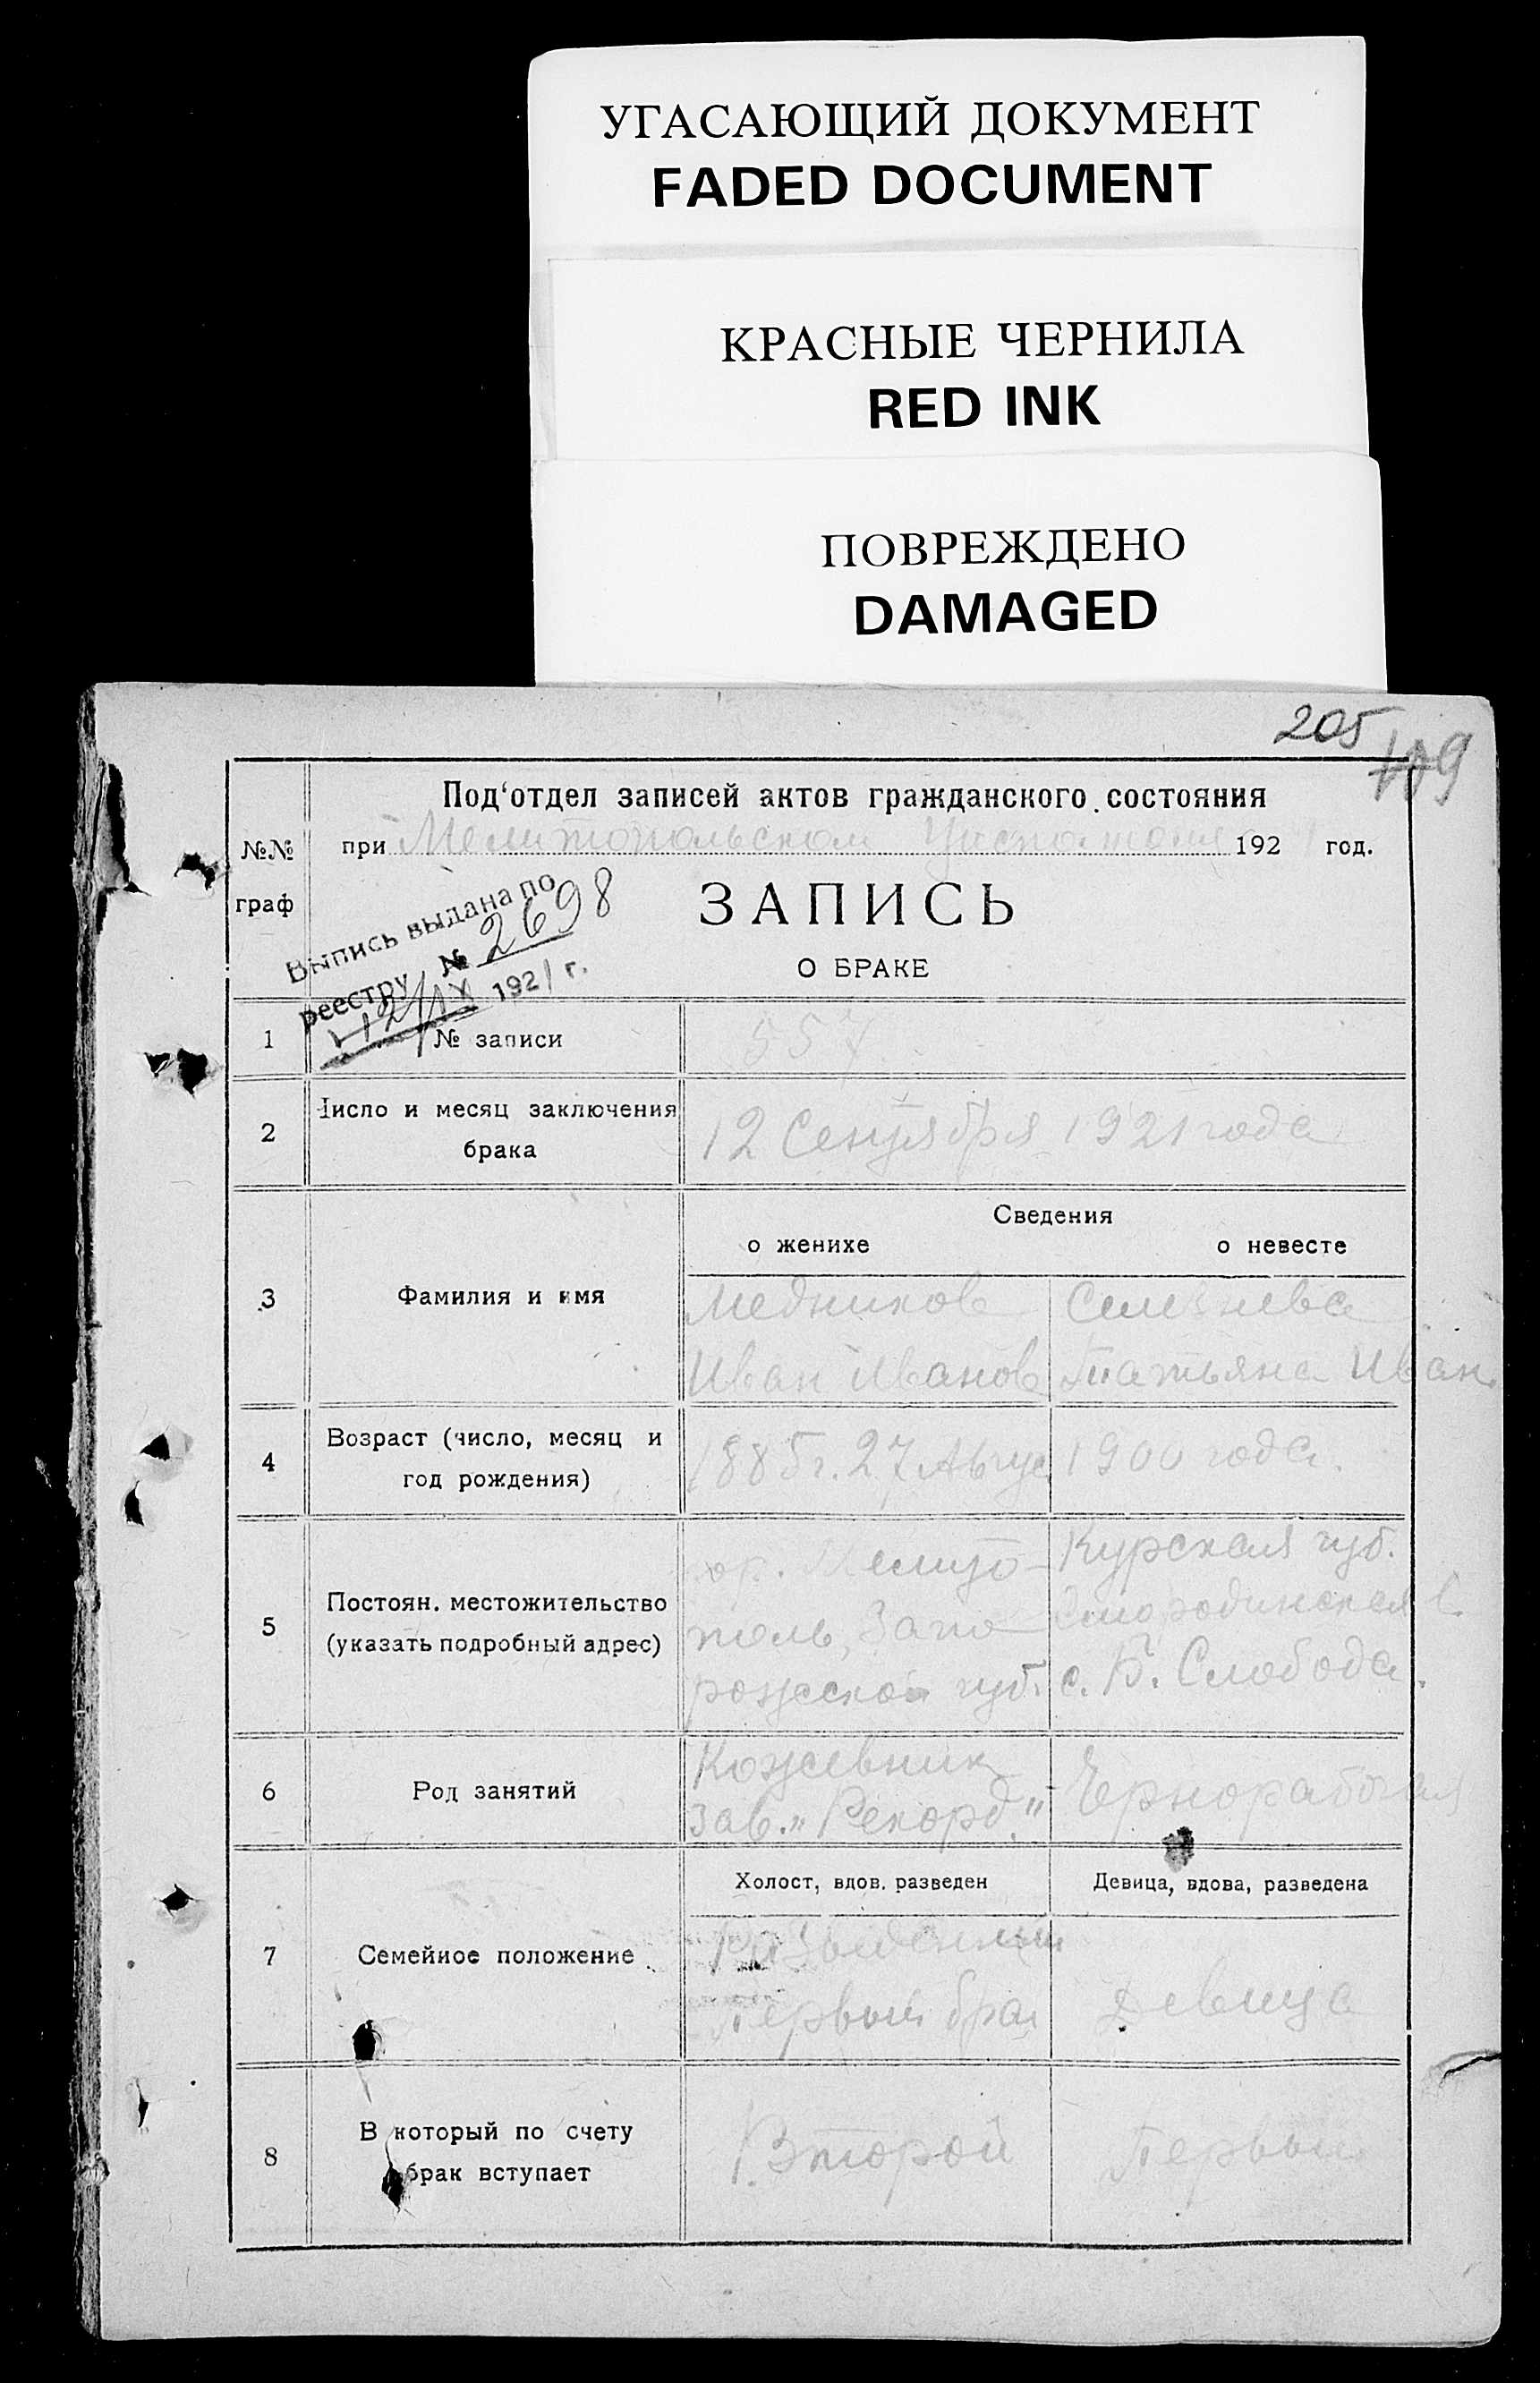 УГАСАЮЩИЙ ДОКУМЕНТ
FADED DOCUMENT
КРАСНЫЕ ЧЕРНИЛА
RED INK
ПОВРЕЖДЕНО
DAMAGED
205
109
Под‘отдел записей актов гражданского состояния
№№ граф
при Мелитопольском 192 год.
ЗАПИСЬ
О БРАКЕ
Выпись выдана по
реестру № 2698
12/IX 1921 г.
1 № записи 557
2 Число и месяц заключения
брака
12 Сентября 1921 года
Сведения
о женихе о невесте
3 Фамилия и имя
Медников
Иван Иванов
Татьяна Иван.
4 Возраст (число, месяц и
год рождения)
1885 г. 27 Август
1900 года.
5 Постоян. местожительство
(указать подробный адрес)
гор. Мелито-
поль, Запо-
рожской губ.
Курская губ.
с. Б. Слобода.
6 Род занятий
Кожевник
зав. „Рекорд"
Чернорабочая
Холост, вдов. разведен
Девица, вдова, разведена
7 Семейное положение
Первый брак
Девица
8 В который по счету
брак вступает
Второй
Первый